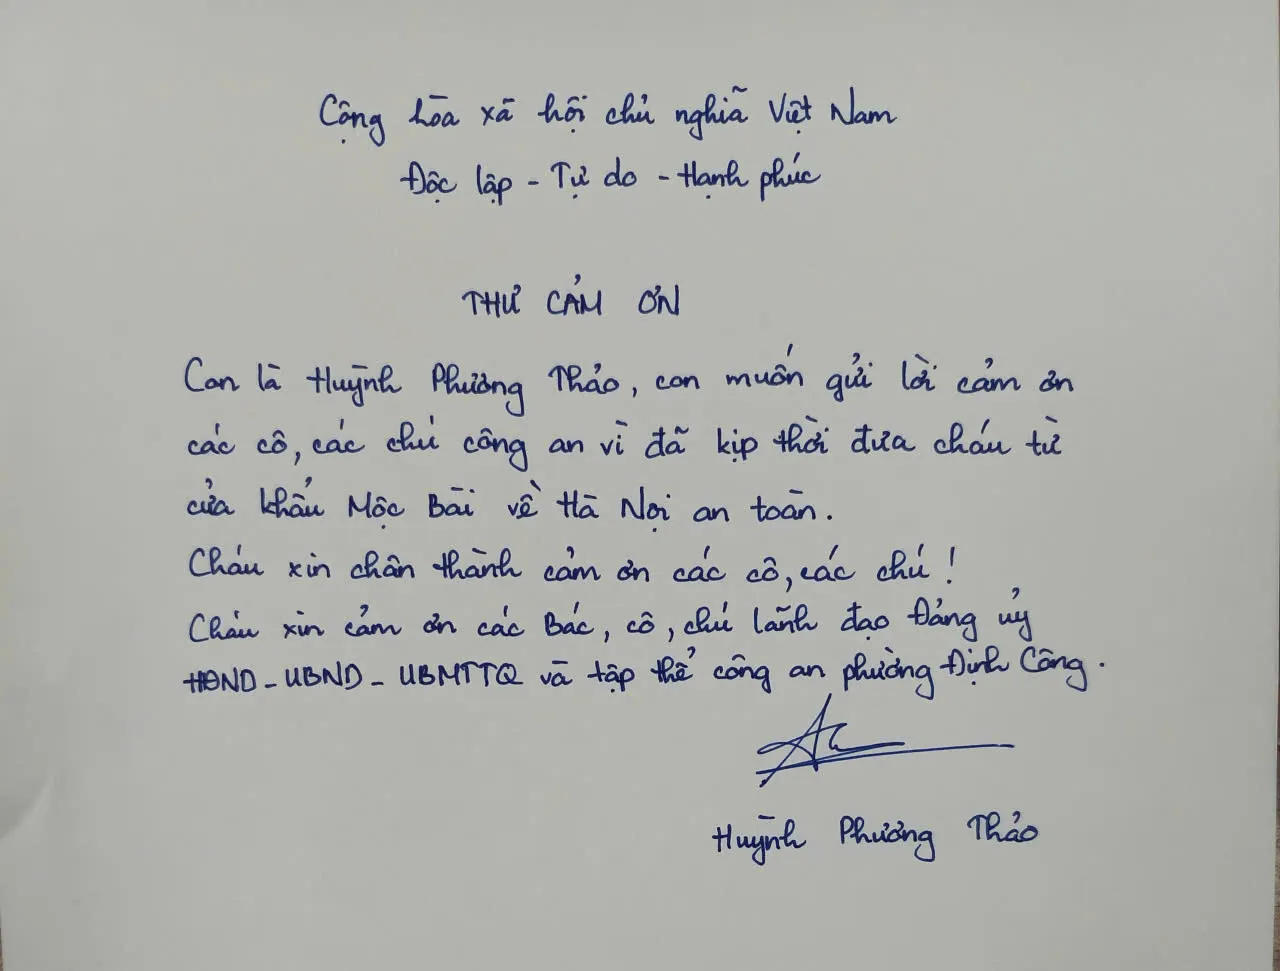 Cộng hòa xã hội chủ nghĩa Việt Nam
Độc lập - Tự do - Hạnh phúc
THƯ CẢM ƠN
Con là Huỳnh Phương Thảo, con muốn gửi lời cảm ơn
các cô, các chú công an vì đã kịp thời đưa cháu từ
cửa khẩu Mộc Bài về Hà Nội an toàn.
Cháu xin chân thành cảm ơn các cô, các chú!
Cháu xin cảm ơn các Bác, cô, chú lãnh đạo Đảng ủy
HĐND - UBND - UBMTTQ và tập thể công an phường Định Công.
Huỳnh Phương Thảo